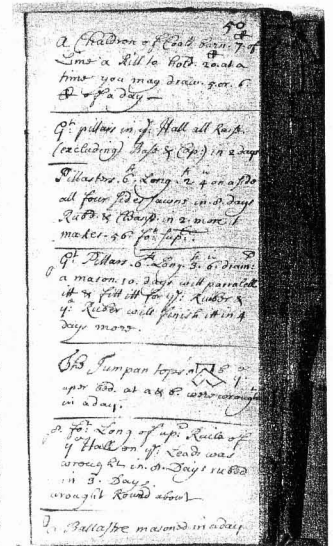 50
A Chaldron of Coals burn. 7. qr
Lime a Kill to hold. 20. at a
time you may draw. 5. or. 6
of a day
Gt. pillars in ye. Hall all Raise.
(excluding) Base & Cap:) in 2 days
Pillasters. 6. Long. 2 4 on a side
all four sides sawne in. 8. days
Rub'd. & Cleans'd in 2. more it
makes. 56. fot. sup:.
Gt. Pillars. 6. Long. 3. 6. diam:
a mason. 10. days will parralell
itt & fitt itt for ye. Rubber &
ye. Rubber will finish itt in 4
days more.
The Tumpan tops
uper bed. at a & b. were wrought
in a day.
8. fot. Long of up: Racla of
ye Hall on ye. Leads was
wrought in. 8. Days rubed
in 3. Day
wrought Round about
Ballastre masoned in a day